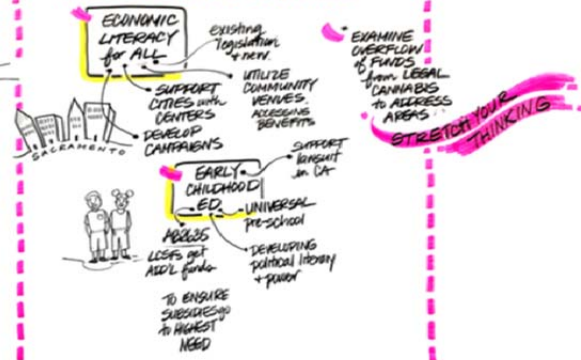 ECONOMIC
LITERACY
for ALL
existing
legislation
+ new.
SUPPORT
CITIES with
CENTERS
UTILIZE
COMMUNITY
VENUES.
ACCESSING
BENEFITS
DEVELOP
CAMPAIGNS
SACRAMENTO
EXAMINE
OVERFLOW
of FUNDS
from LEGAL
CANNABIS
to ADDRESS
AREAS.
STRETCH YOUR
THINKING
EARLY
CHILDHOOD
ED.
SUPPORT
lawsuit
in CA
UNIVERSAL
pre-school
DEVELOPING
political literacy
+ power
AB2635
get
ADD'L funds
TO ENSURE
SUBSIDIES go
to HIGHEST
NEED